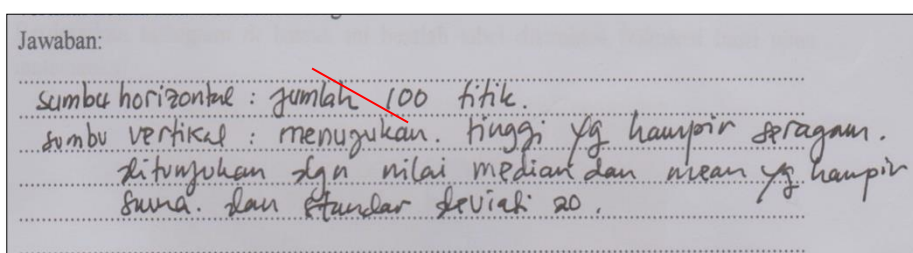 Jawaban:
sumbu horizontal : jumlah 100 titik.
sumbu vertikal : menunjukan. tinggi yg hampir seragam.
ditunjukan dgn nilai median dan mean yg hampir
sama. dan standar deviasi 20.